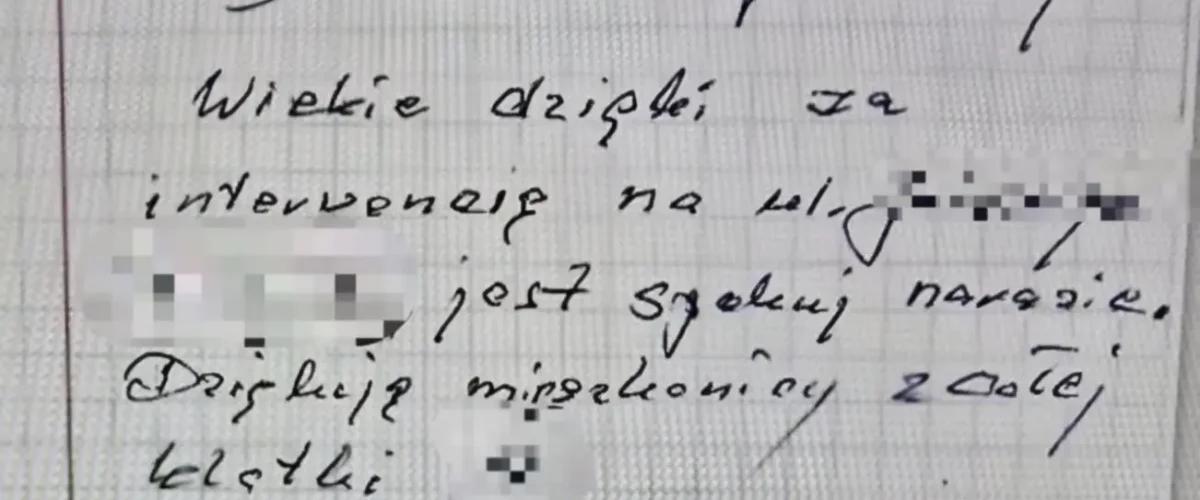 Wiekie dzięki za
interwencię na ul.
jest spokuj narazie.
Dziękuję mieszkonicy z całej
klatki